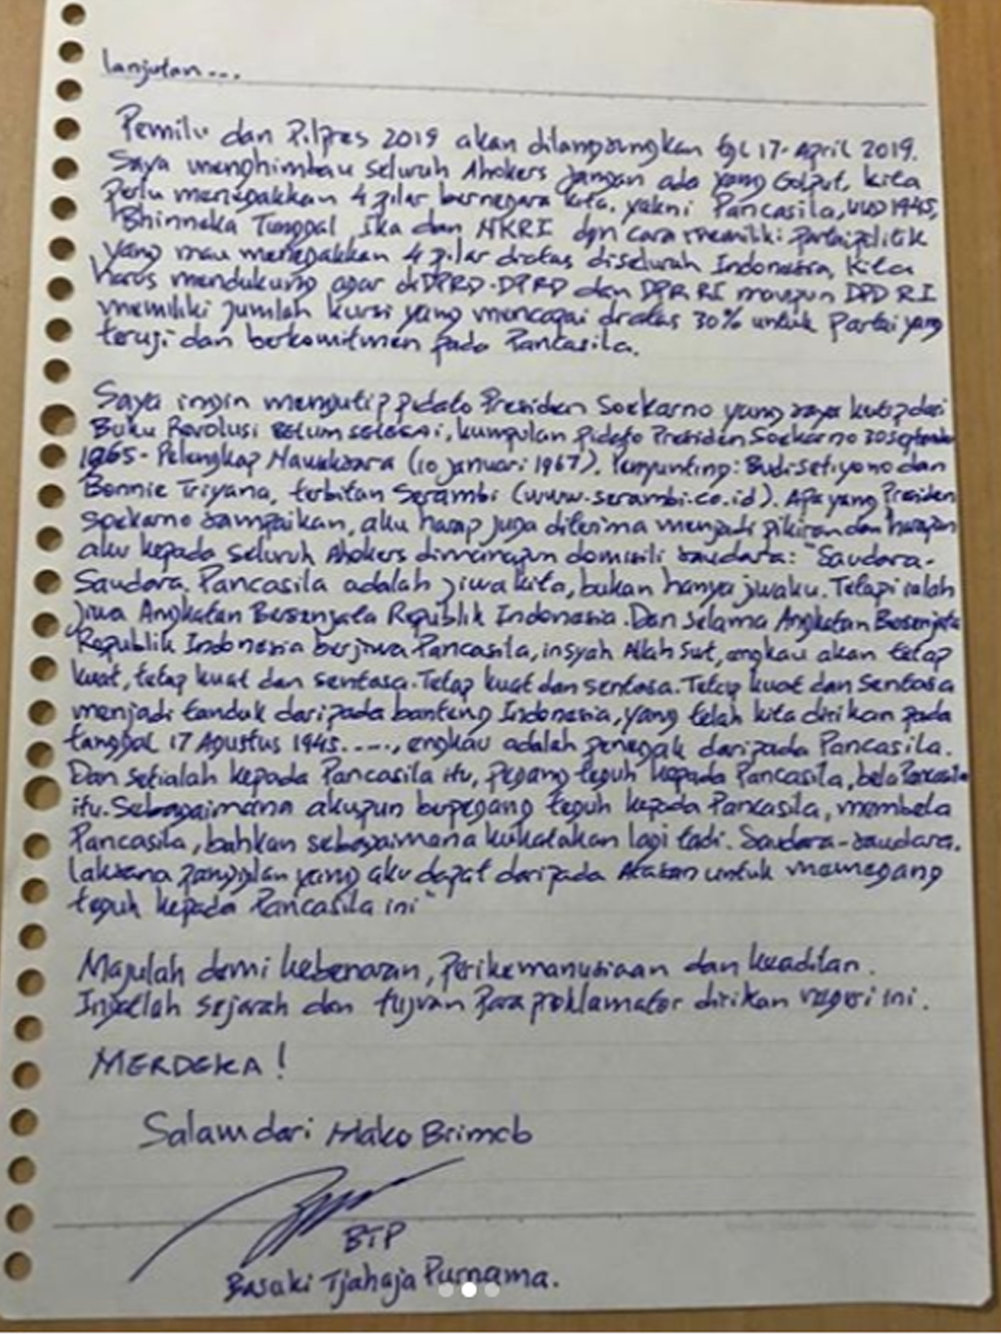 lanjutan...
Pemilu dan Pilpres 2019 akan dilangsungkan tgl 17-April 2019.
Saya menghimbau seluruh Ahokers jangan ada yang Golput, kita
Perlu menegakkan 4 pilar bernegara kita, yakni Pancasila, UUD 1945,
Bhinneka Tunggal Ika dan NKRI dgn cara memiliki partai politik
yang mau menegakkan 4 pilar diatas diseluruh Indonesia, kita
harus mendukung agar di DPRD-DPRD dan DPR RI maupun DPD RI
memiliki jumlah kursi yang mencapai diatas 30% untuk Partai yang
teruji dan berkomitmen pada Pancasila.
Saya ingin mengutip pidato Presiden Soekarno yang saya kutip dari
Buku Revolusi BELUM SELESAI, kumpulan pidato Presiden Soekarno 30 September
1965- Pelengkap Nawaksara (10 Januari 1967). Penyunting: Budi Setiyono dan
Bonnie Triyana, terbitan Serambi (www.serambi.co.id). Apa yang Presiden
Soekarno sampaikan, aku harap juga diterima menjadi pikiran dan harapan
aku kepada seluruh Ahokers dimanapun domisili saudara: "Saudara-
Saudara. Pancasila adalah jiwa kita, bukan hanya jiwaku. Tetapi ialah
jiwa Angkatan Bersenjata Republik Indonesia. Dan selama Angkatan Bersenjata
Republik Indonesia berjiwa Pancasila, insyah Allah Swt, engkau akan tetap
kuat, tetap kuat dan sentosa. Tetap kuat dan sentosa. Tetap kuat dan sentosa
menjadi tanduk daripada banteng Indonesia, yang telah kita dirikan pada
tanggal 17 Agustus 1945....., engkau adalah penegak daripada Pancasila.
Dan setialah kepada Pancasila itu, pegang teguh kepada Pancasila, bela Pancasila
itu. Sebagaimana akupun berpegang teguh kepada Pancasila, membela
Pancasila, bahkan sebagaimana kukatakan lagi tadi. Saudara-saudara.
laksana panggilan yang aku dapat daripada Atasan untuk memegang
teguh kepada Pancasila ini"
Majulah demi kebenaran, Perikemanusiaan dan keadilan.
Ingatlah sejarah dan tujuan Para proklamator dirikan negeri ini.
MERDEKA!
Salam dari Mako Brimob
BTP
Basuki Tjahaja Purnama.